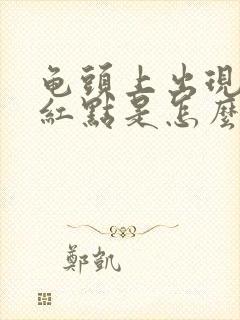 龟頭上出現
紅點是怎麼
鄭凱